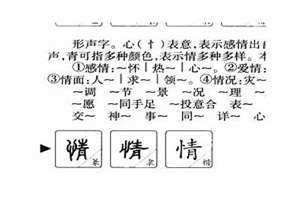 形声字。心(忄)表意,表示感情出自
声,青可指多种颜色,表示情多种多样。本
①感情:～怀|热～|心～。②爱情:
③情面:人～|求～|领～。④情况:灾～
调 ～节 ～景 ～况 ～理 ～
～愿 ～同手足 ～投意合 表～
交～ 神～ 事～ 同～ 详～ 心
情 情 情
篆 隶 楷